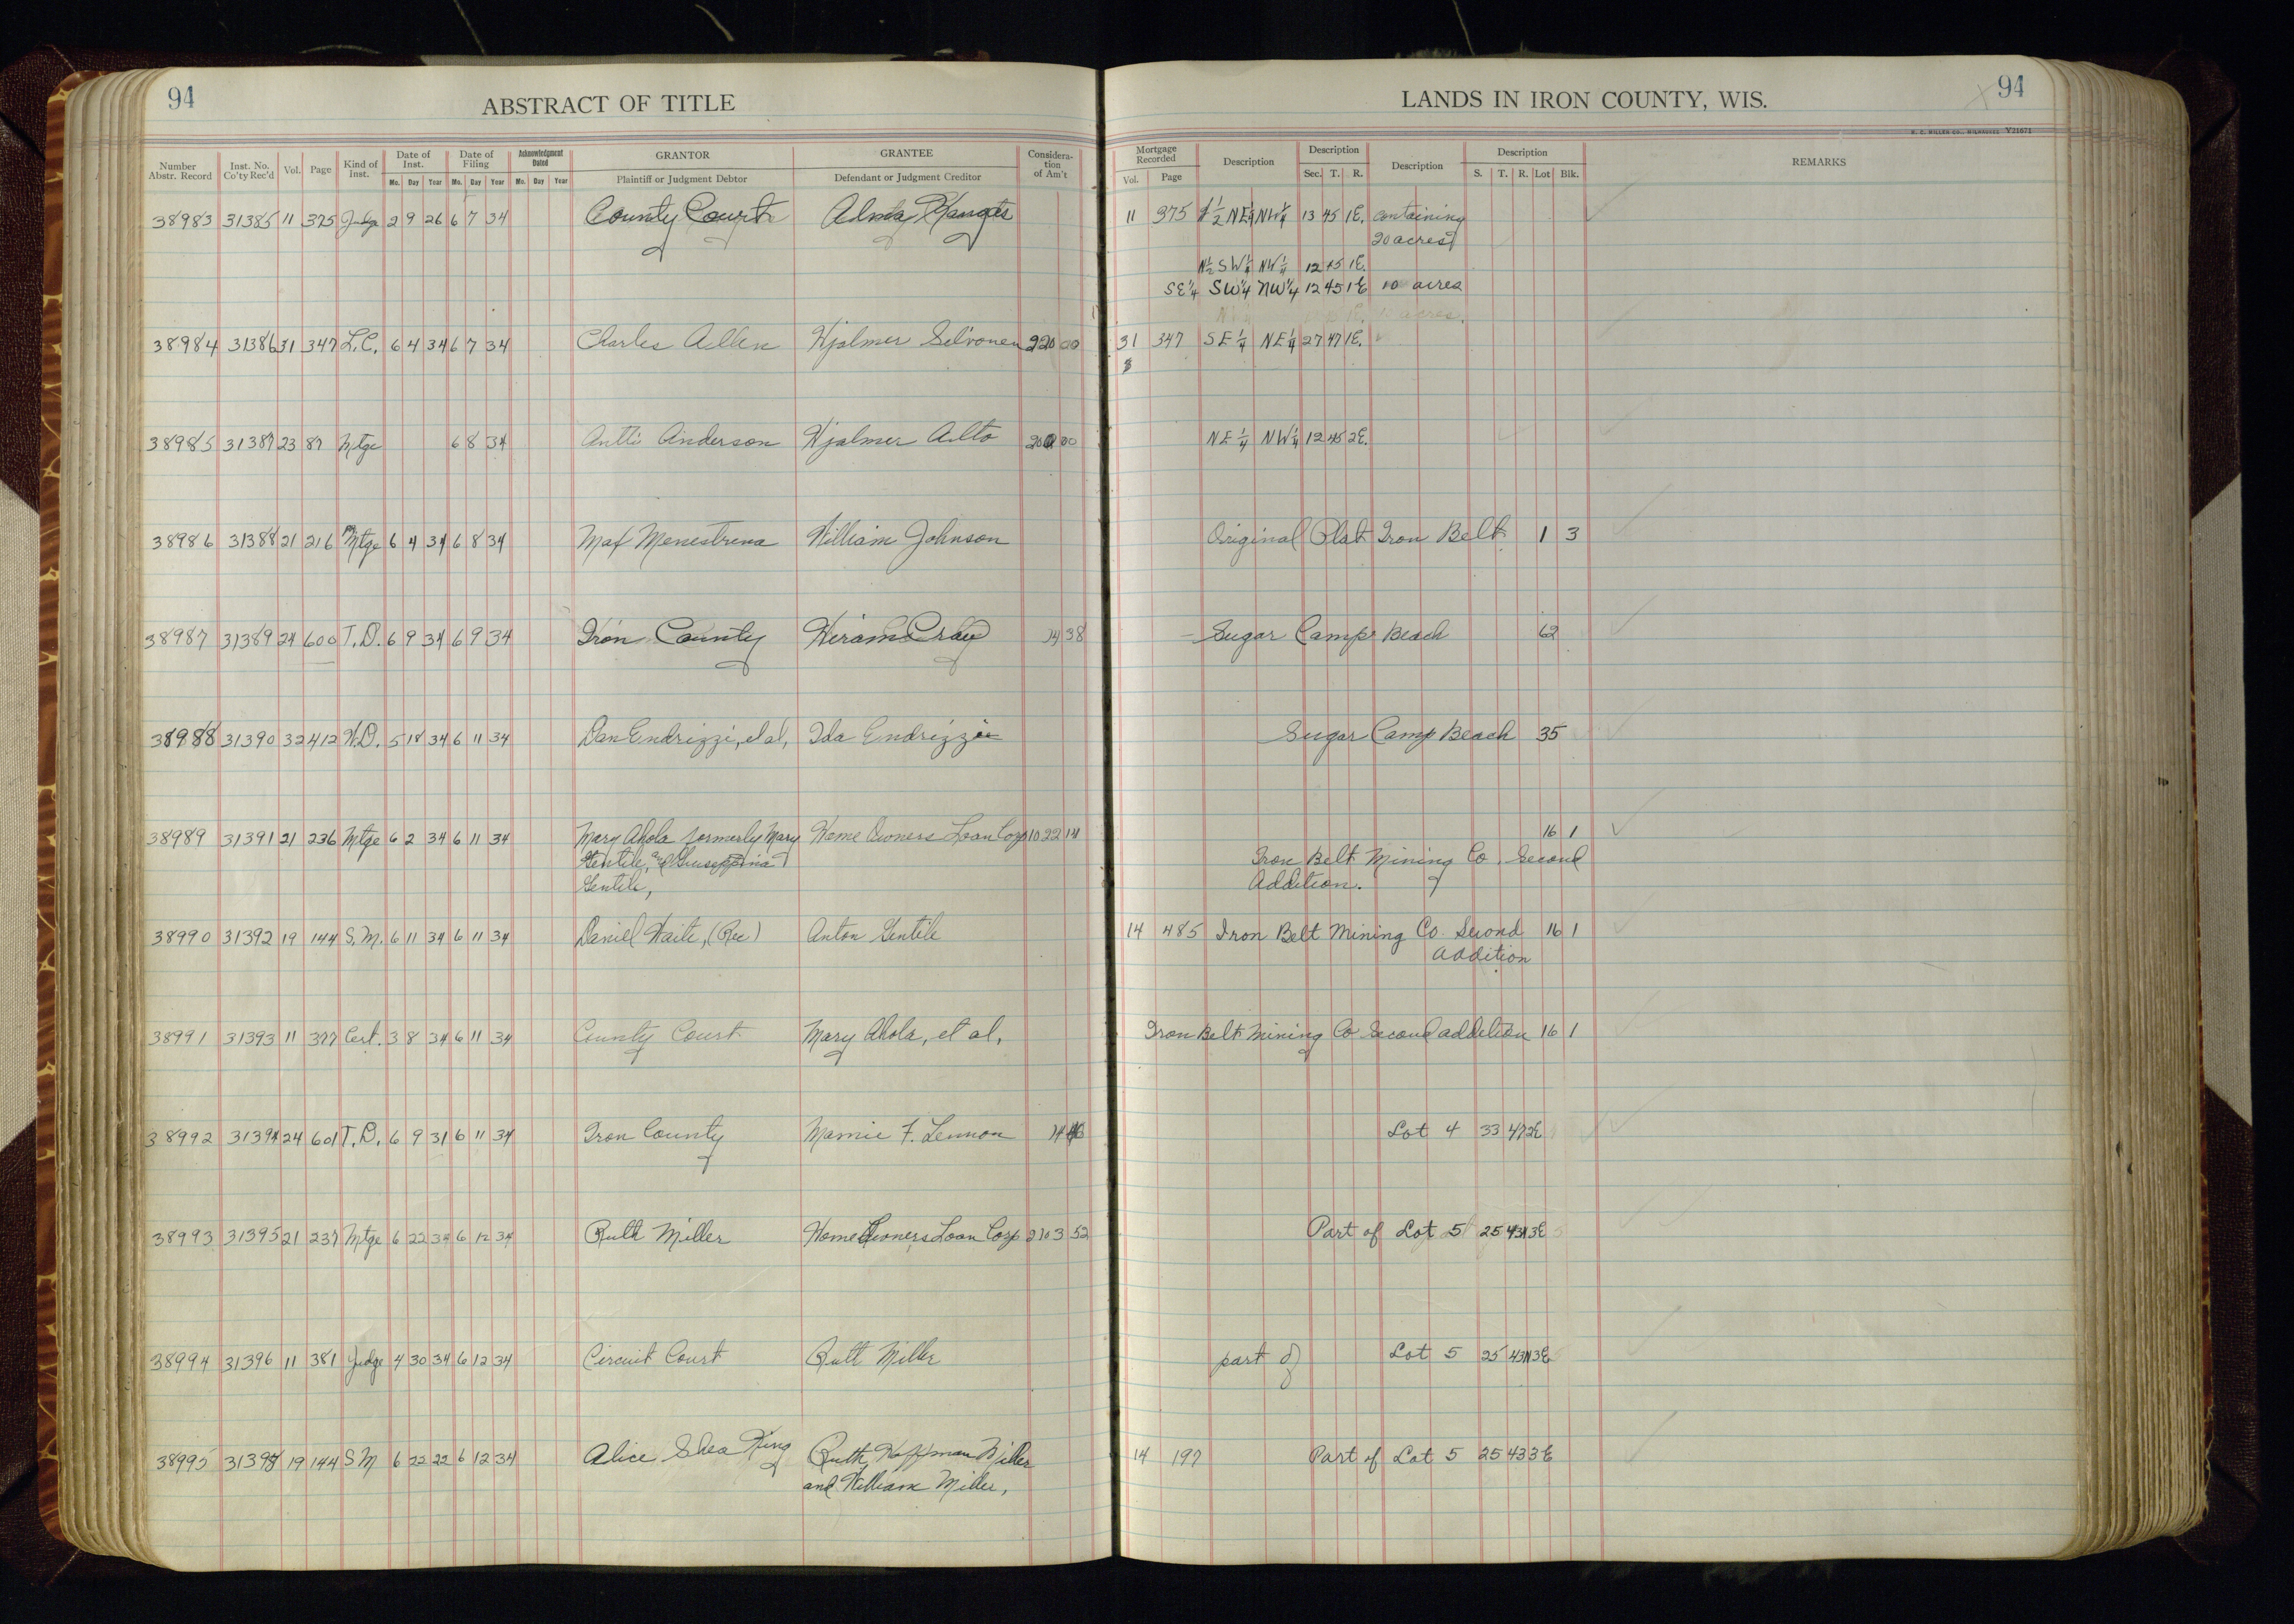 94
ABSTRACT OF TITLE
Number Abstr. Record
Inst. No. Co'ty Rec'd
Vol.
Page
Kind of Inst.
Date of Inst.
Mo. Day Year
Date of Filing
Mo. Day Year
Acknowledgment Dated
Mo. Day Year
GRANTOR
Plaintiff or Judgment Debtor
GRANTEE
Defendant or Judgment Creditor
Considera-tion of Am't
38983 31385 11 375 Judge 2 9 26 6 7 34 County Court Alma
38984 31386 31 347 L.C. 6 4 34 6 7 34 Charles Allen Hjalmer Silvonen 220 00
38985 31387 23 87 Mtge 6 8 34 Antti Anderson Hjalmer Aulto 200 00
38986 31388 21 216 Mtge 6 4 34 6 8 34 Max Menestrina William Johnson
38987 31389 24 600 T.D. 6 9 34 6 9 34 Iron County Hiram Cray 14 38
38988 31390 32 412 W.D. 5 18 34 6 11 34 Dan Endrizzi, et al, Ida Endrizzi
38989 31391 21 236 Mtge 6 2 34 6 11 34 Mary Ahola formerly Mary Home Owners Loan Corp 1022 14
Gentile, and Guiseppina
Gentile,
38990 31392 19 144 S.M. 6 11 34 6 11 34 Daniel Waite, (Rec) Anton Gentile
38991 31393 11 377 Cert. 3 8 34 6 11 34 County Court Mary Ahola, et al,
38992 31394 24 601 T.D. 6 9 31 6 11 34 Iron County Mamie F. Lennon 14
38993 31395 21 237 Mtge 6 22 34 6 12 34 Ruth Miller Home Owners Loan Corp 2103 52
38994 31396 11 381 Judge 4 30 34 6 12 34 Circuit Court Ruth Miller
38995 31397 19 144 S M 6 22 22 6 12 34 Alice Shea King Ruth Hoffman Miller
and William Miller,
LANDS IN IRON COUNTY, WIS.
94
H. C. MILLER CO., MILWAUKEE Y21671
Mortgage Recorded
Vol. Page
Description
Description
Sec. T. R.
Description
Description
S. T. R. Lot Blk.
REMARKS
11 375 ½ NE¼ NW¼ 13 45 1E. containing
20 acres
N½ SW¼ NW¼ 12 45 1E.
SE¼ SW¼ NW¼ 12 45 1E 10 acres
31 347 SE¼ NE¼ 27 47 1E.
NE¼ NW¼ 12 45 2E.
Original Plat Iron Belt 1 3
Sugar Camp Beach 62
Sugar Camp Beach 35
16 1
Iron Belt Mining Co. Second
Addition.
14 485 Iron Belt Mining Co. Second 16 1
Addition
Iron Belt Mining Co Second addition 16 1
Lot 4 33 47 2E
Part of Lot 5 25 43N 3E
part of Lot 5 25 43N 3E
14 197 Part of Lot 5 25 43 3E